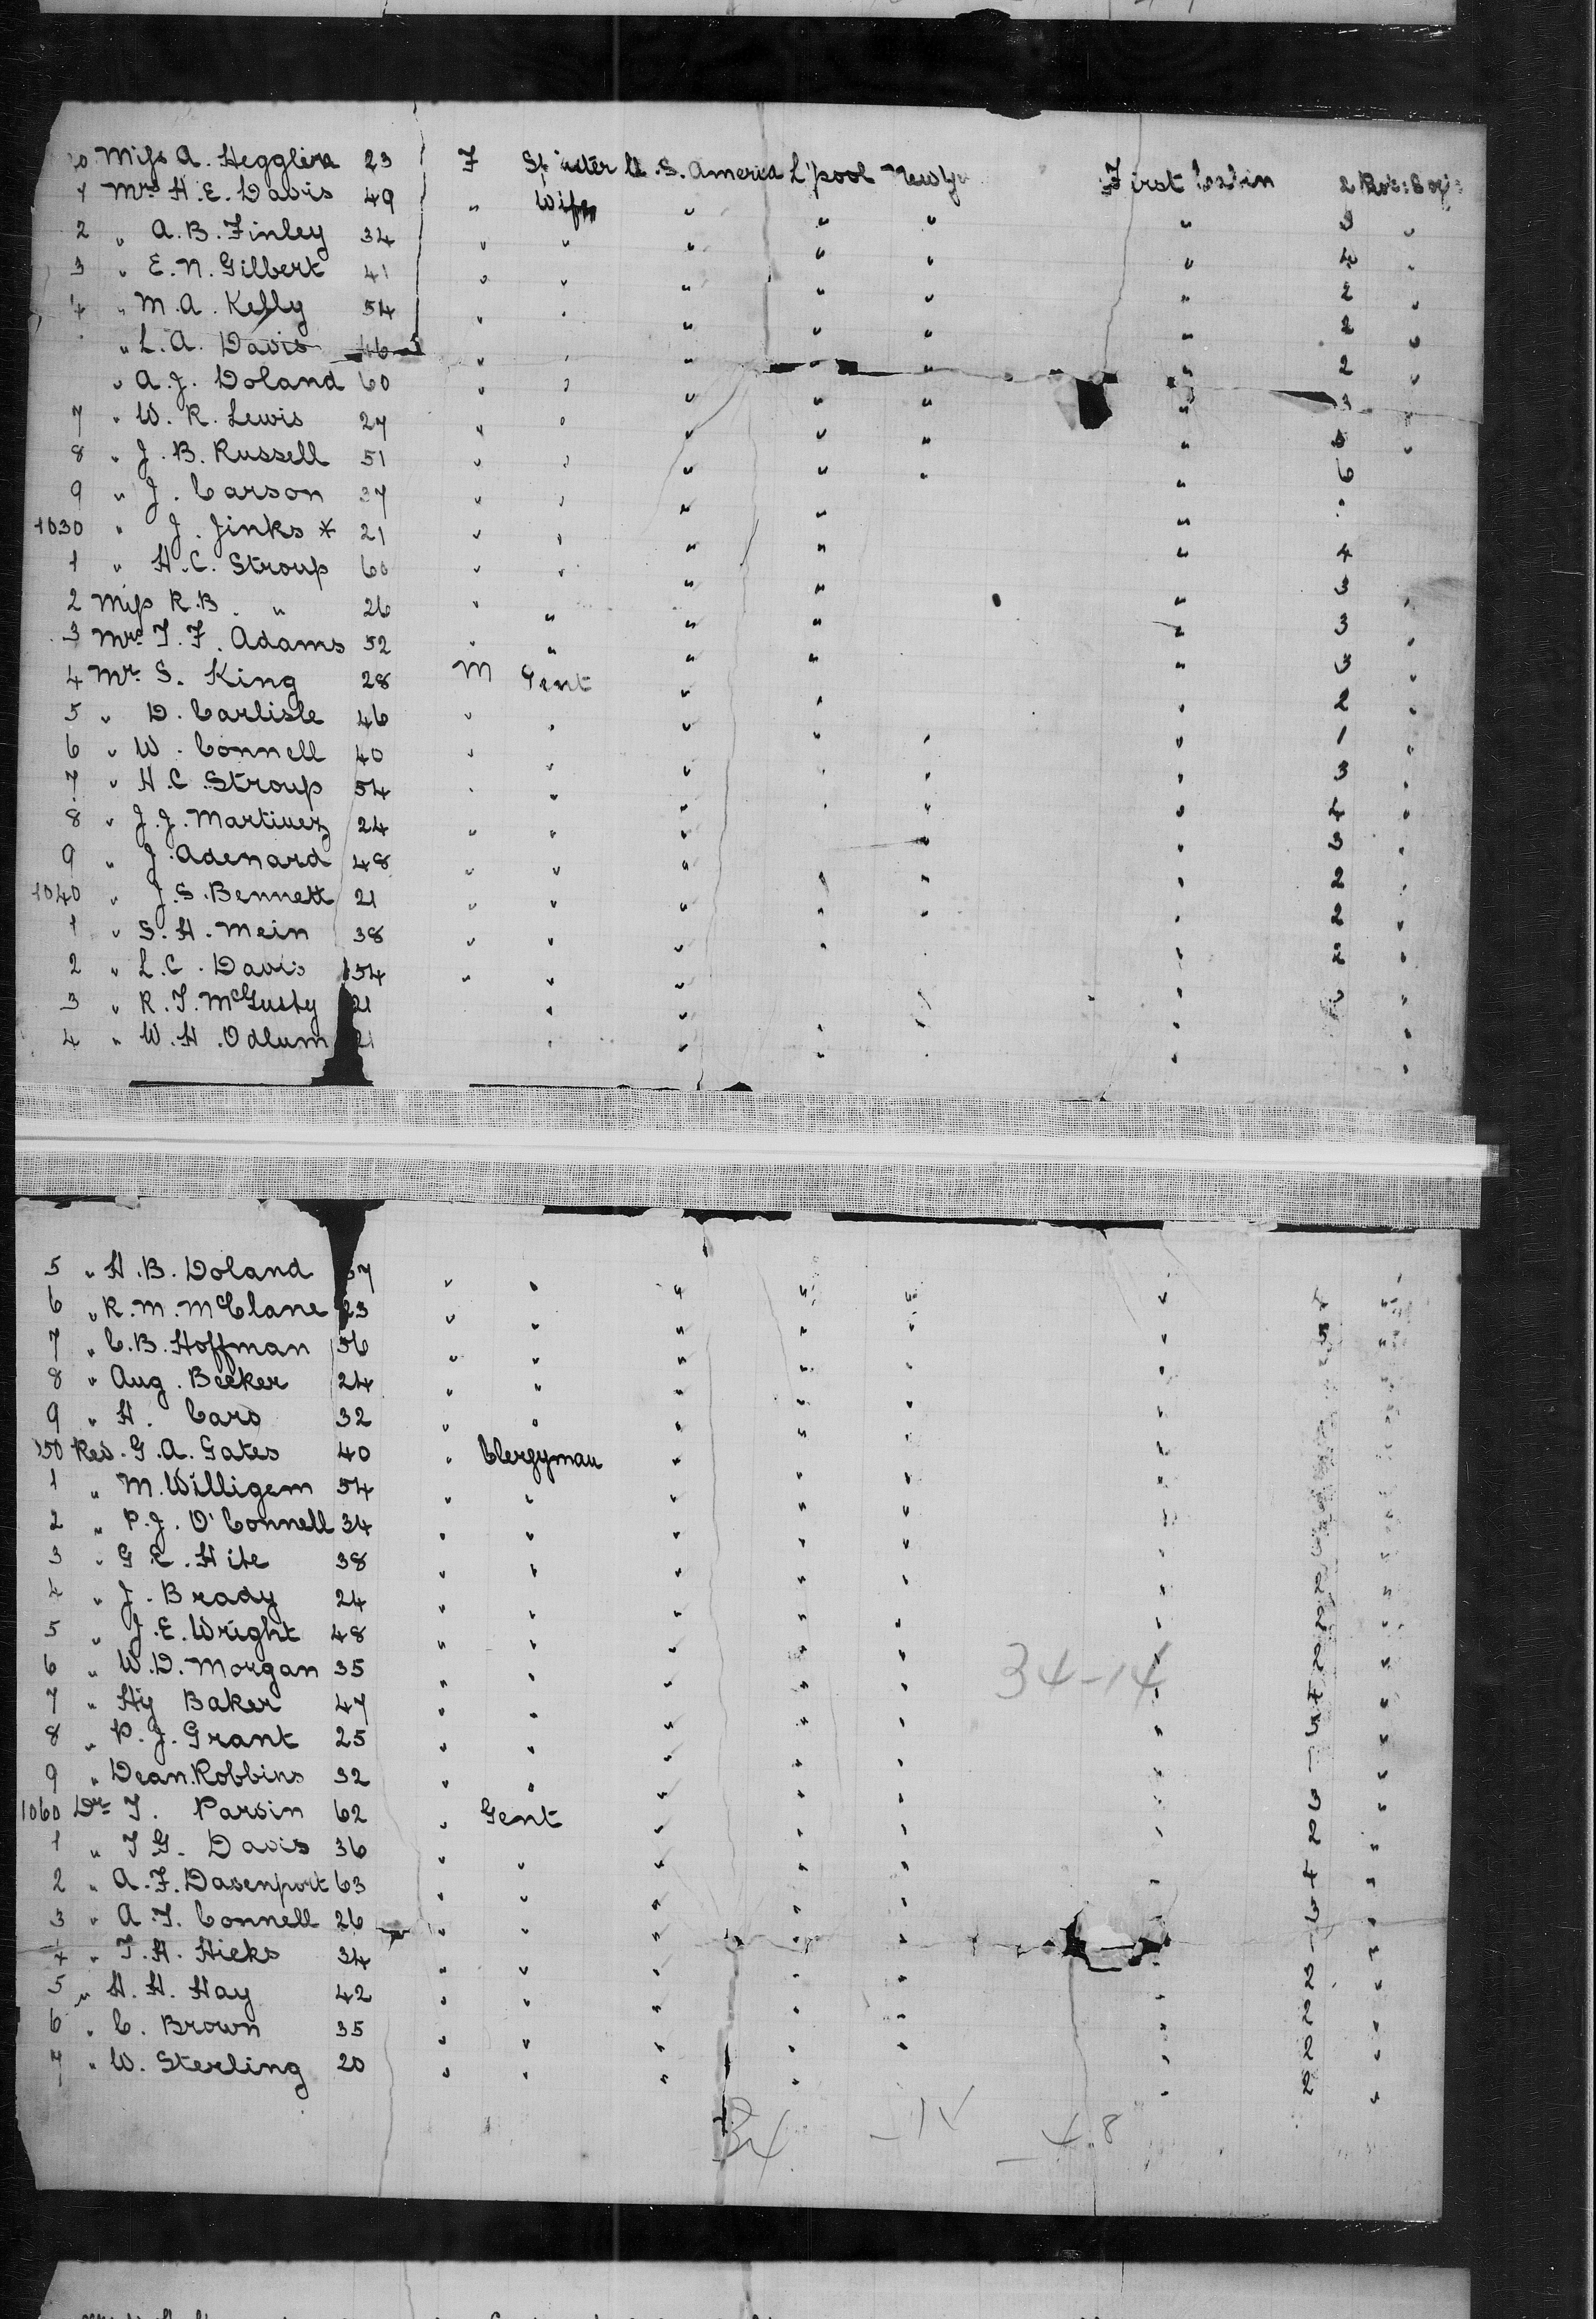 20 Miss A. Hegglin 23 F Spinster U.S. America L'pool New Yo First Cabin 2
1 Mrs H. E. Davis 49 " Wife " " " " 3 "
2 " A. B. Finley 34 " " " " " " 4 "
3 " E. N. Gilbert 41 " " " " " " 2 "
4 " M. A. Kelly 54 " " " " " " 2 "
" L. A. Davis 46 " " " " " " 2 "
" A. J. Doland 60 " " " " " " 3 "
7 " W. R. Lewis 27 " " " " " " "
8 " J. B. Russell 51 " " " " " " 6
9 " J. Carson 37 " " " " "
1030 " J. Jinks * 21 " " " " " 4
1 " H. C. Stroup 60 " " " " " 3 "
2 Miss R. B. " 26 " " " " " 3 "
3 Mrs T. F. Adams 52 " " " " " 3 "
4 Mr. S. King 28 M Gent " " " 2 "
5 " D. Carlisle 46 " " " " " " 1 "
6 " W. Connell 40 " " " " " " 3 "
7 " H. C. Stroup 54 " " " " " " 4 "
8 " J. J. Martinez 24 " " " " " 3 "
9 " J. Adenard 48 " " " " " " 2 "
1040 " J. S. Bennett 21 " " " " " " 2 "
1 " S. H. Mein 38 " " " " " 2 "
2 " L. C. Davis 54 " " " " "
3 " R. T. McGusty 21 " " " " " "
4 " W. H. Odlum 21 " " " " " "
5 " H. B. Doland 57 " " " " " "
6 " R. M. McClane 23 " " " " " " 5 "
7 " C. B. Hoffman 56 " " " " " "
8 " Aug. Becker 24 " " " " " "
9 " H. Cars 32 " " " " " "
50 Rev. G. A. Gates 40 " Clergyman " " " "
1 " M. Willigem 54 " " " " " "
2 " P. J. O'Connell 34 " " " " " "
3 " G. E. Hite 38 " " " " " " "
4 " J. Brady 24 " " " " " " 2 "
5 " J. E. Wright 48 " " " " " " 2 "
6 " W. D. Morgan 35 " " " " " 34-14 " "
7 " Hy Baker 47 " " " " " " "
8 " P. J. Grant 25 " " " " " " "
9 " Dean Robbins 32 " " " " " " "
1060 Dr. T. Parsin 62 " Gent " " " " "
1 " T. G. Davis 36 " " " " " 2 "
2 " A. F. Davenport 63 " " " " " " 4 "
3 " A. T. Connell 26 " " " " " 3 "
4 " T. H. Hicks 34 " " " " " " "
5 " H. H. Hay 42 " " " " " " 2 "
6 " C. Brown 35 " " " " " " 2 "
7 " W. Sterling 20 " " " " " 2 "
34